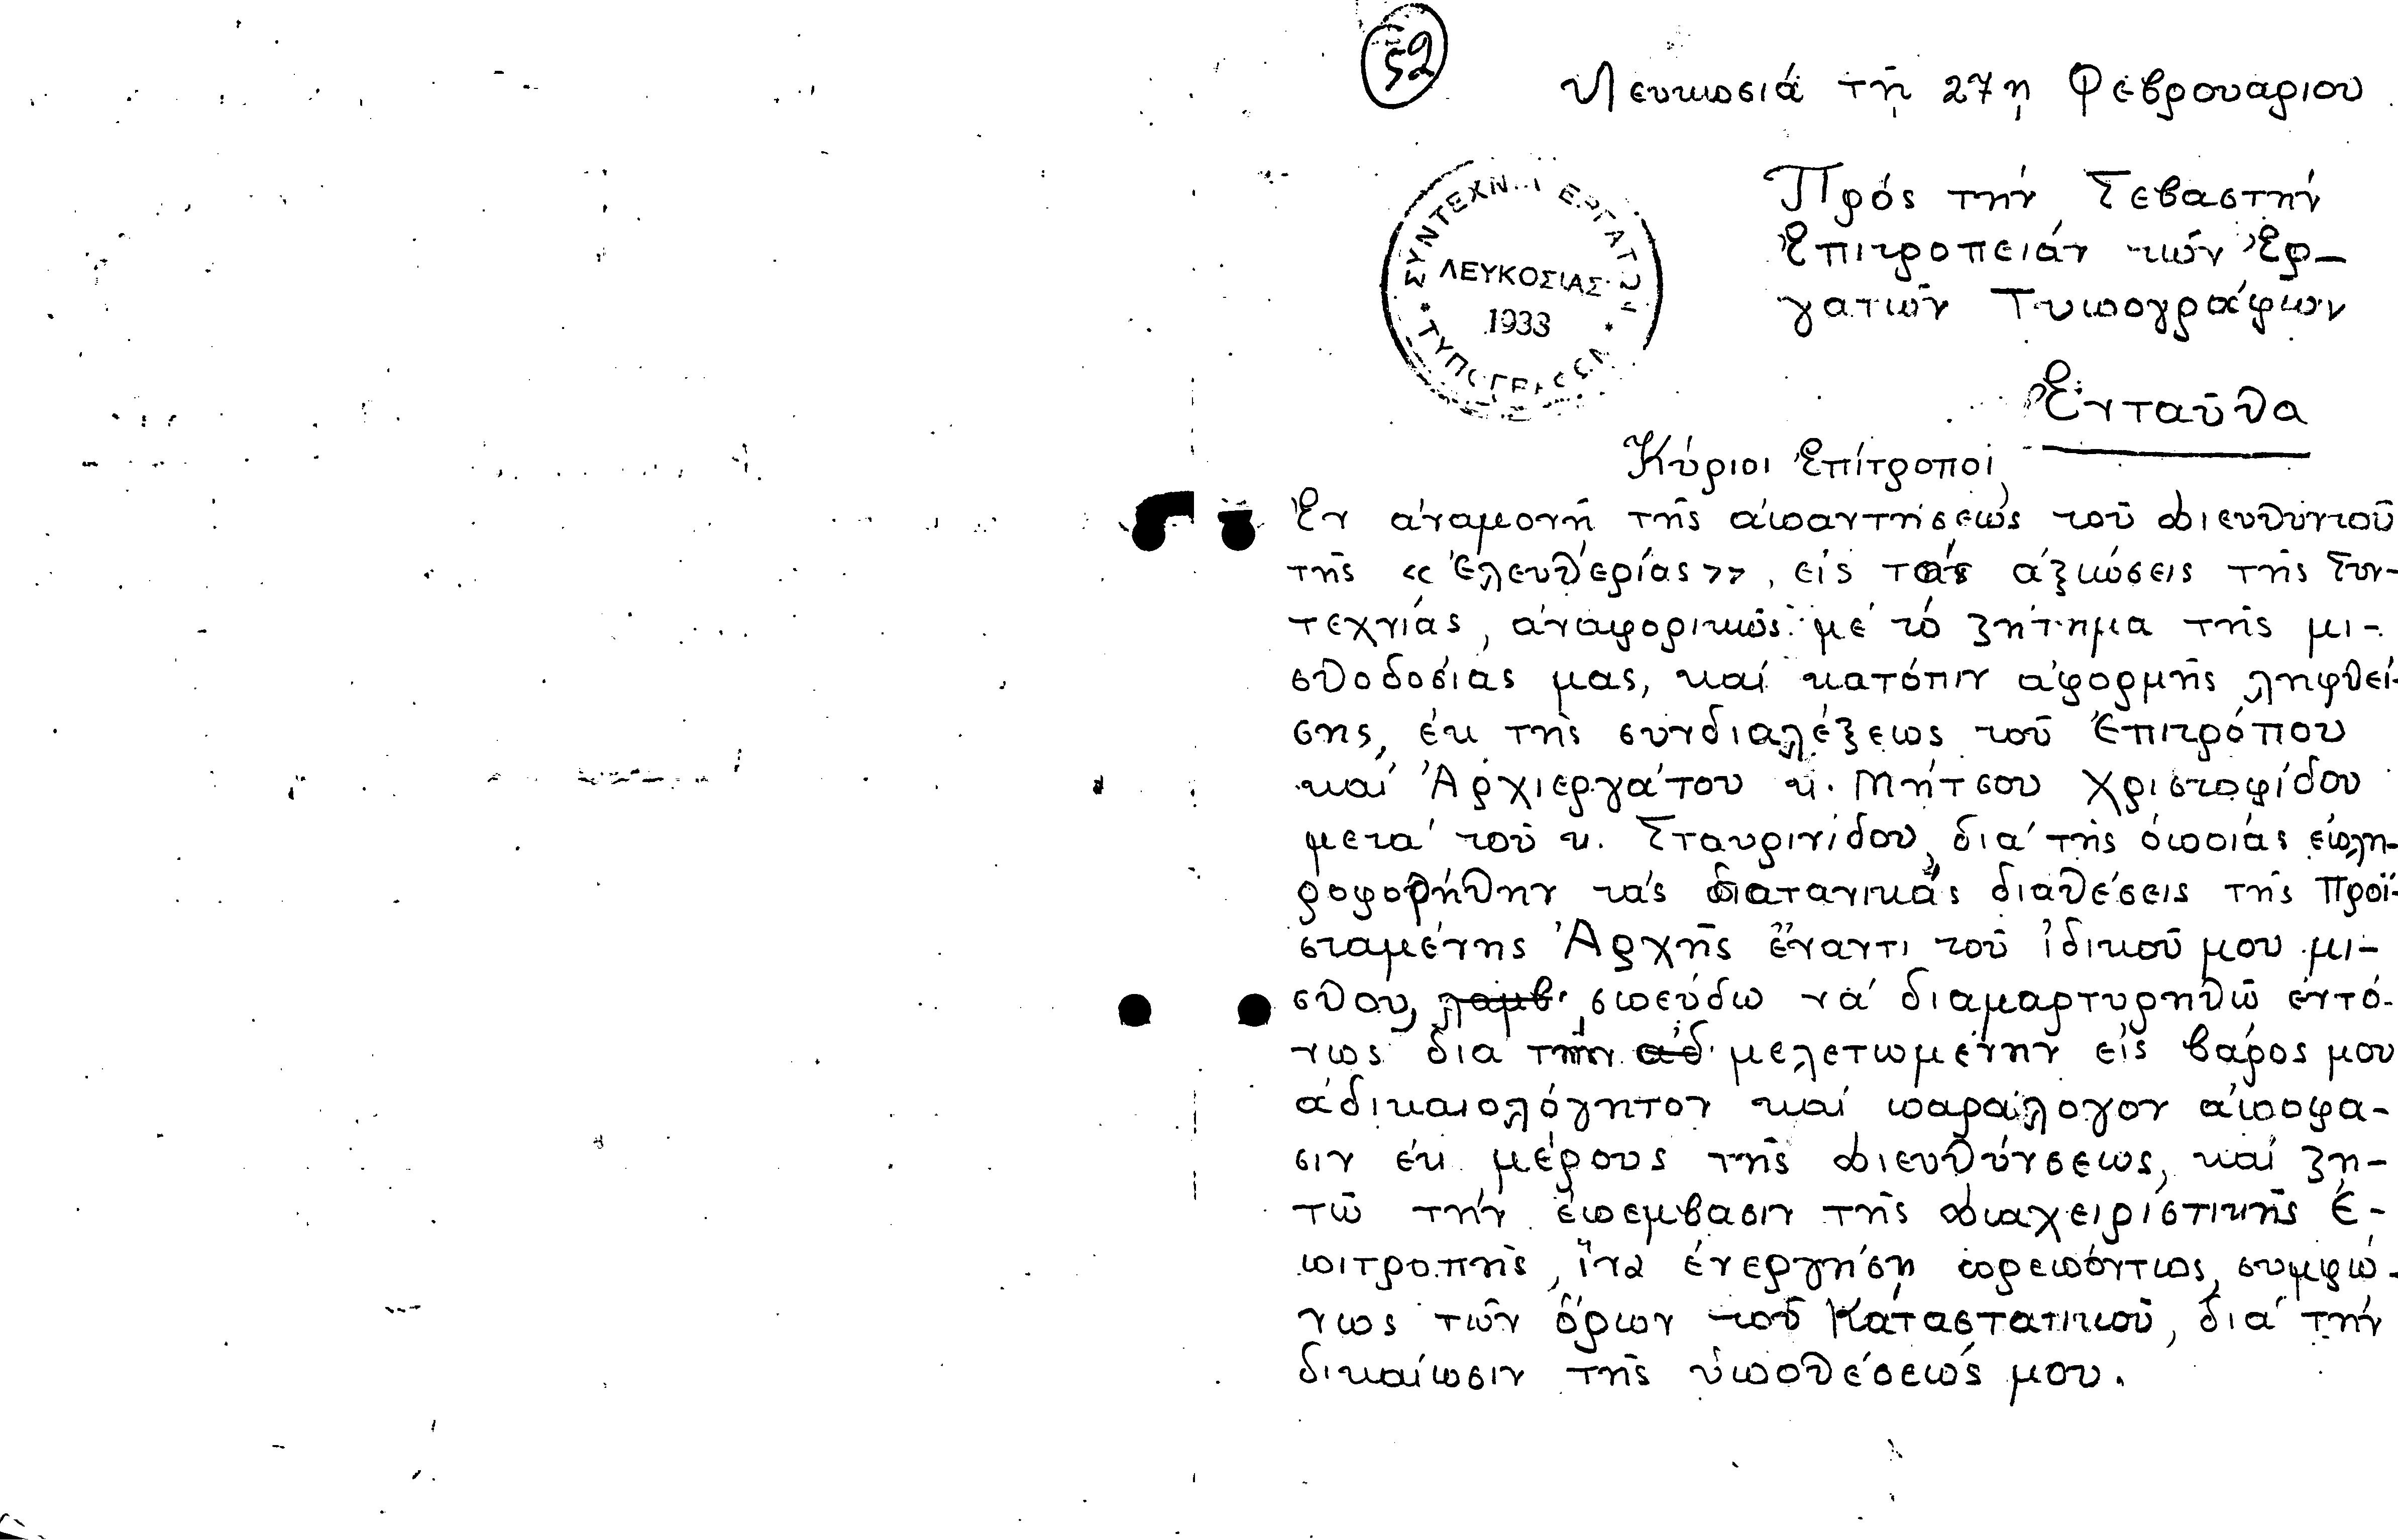 52
Λευκωσιά τῇ 27ῃ Φεβρουαριου
ΣΥΝΤΕΧΝ ΕΡΓΑΤΩΝ
ΛΕΥΚΟΣΙΑΣ
1933
Πρός τήν Σεβαστήν
Ἐπιτροπειάν τῶν Ἐρ-
γατῶν Τυπογράφων
Ἐνταῦθα
Κύριοι Ἐπίτροποι,
Ἐν ἀναμονῇ τῆς ἀπαντήσεώς τοῦ Διευθυντοῦ
τῆς «Ἐλευθερίας», εἰς τάς ἀξιώσεις τῆς Συν-
τεχνίας, ἀναφορικῶς μέ τό ζήτημα τῆς μι-
σθοδοσίας μας, καί κατόπιν ἀφορμῆς ληφθεί-
σης, ἐκ τῆς συνδιαλέξεως τοῦ Ἐπιτρόπου
καί Ἀρχιεργάτου κ. Μήτσου Χριστοφίδου
μετά τοῦ κ. Σταυρινίδου, διά τῆς ὁποιάς ἐπλη-
ροφορήθην τάς διατανικάς διαθέσεις τῆς Προϊ-
σταμένης Ἀρχῆς ἔναντι τοῦ ἰδικοῦ μου μι-
σθου, λαμβ. σπεύδω νά διαμαρτυρηθῶ ἐντό-
νως διά τήν ἀδ. μελετωμένην εἰς βάρος μου
ἀδικαιολόγητον καί παράλογον ἀποφα-
σιν ἐκ μέρους τῆς Διευθύνσεως, καί ζη-
τῶ τήν ἐπεμβασιν τῆς Διαχειρίστικῆς Ἐ-
πιτροπῆς, ἵνα ἐνεργήσῃ πρεπόντως, συμφώ-
νως τῶν ὅρων τοῦ Κάταστατικοῦ, διά τήν
δικαίωσιν τῆς ὑποθέσεώς μου.